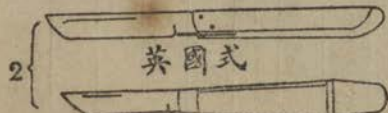 2
英國式